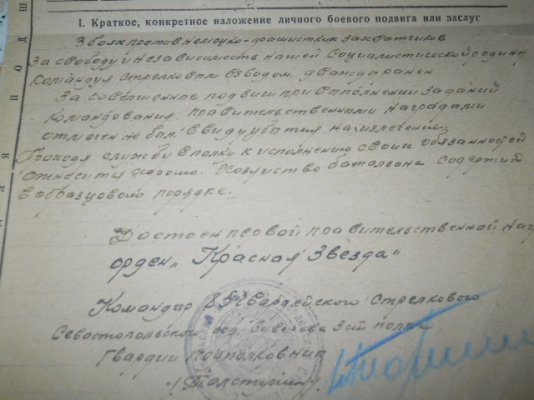 I. Краткое, конкретное изложение личного боевого подвига или заслуг
В боях против немецко-фашистких захватчиков
За свободу и независимость нашей Социалистической родины
Командуя Стрелковым взводом, дважды ранен
За совершенные подвиги при выполнении заданий
Командования правительственными наградами
отмечен не был. Ввиду убытия на излечение.
Проходя службу в полку к исполнению своих обязанностей
относится хорошо. Хозяйство батальона содержит
в образцовом порядке.
Достоин первой правительственной наг
орден „Красная Звезда"
Командир Гвардейского Стрелкового
Севастопольского орд. Суворова 3й полка
Гвардии подполковник